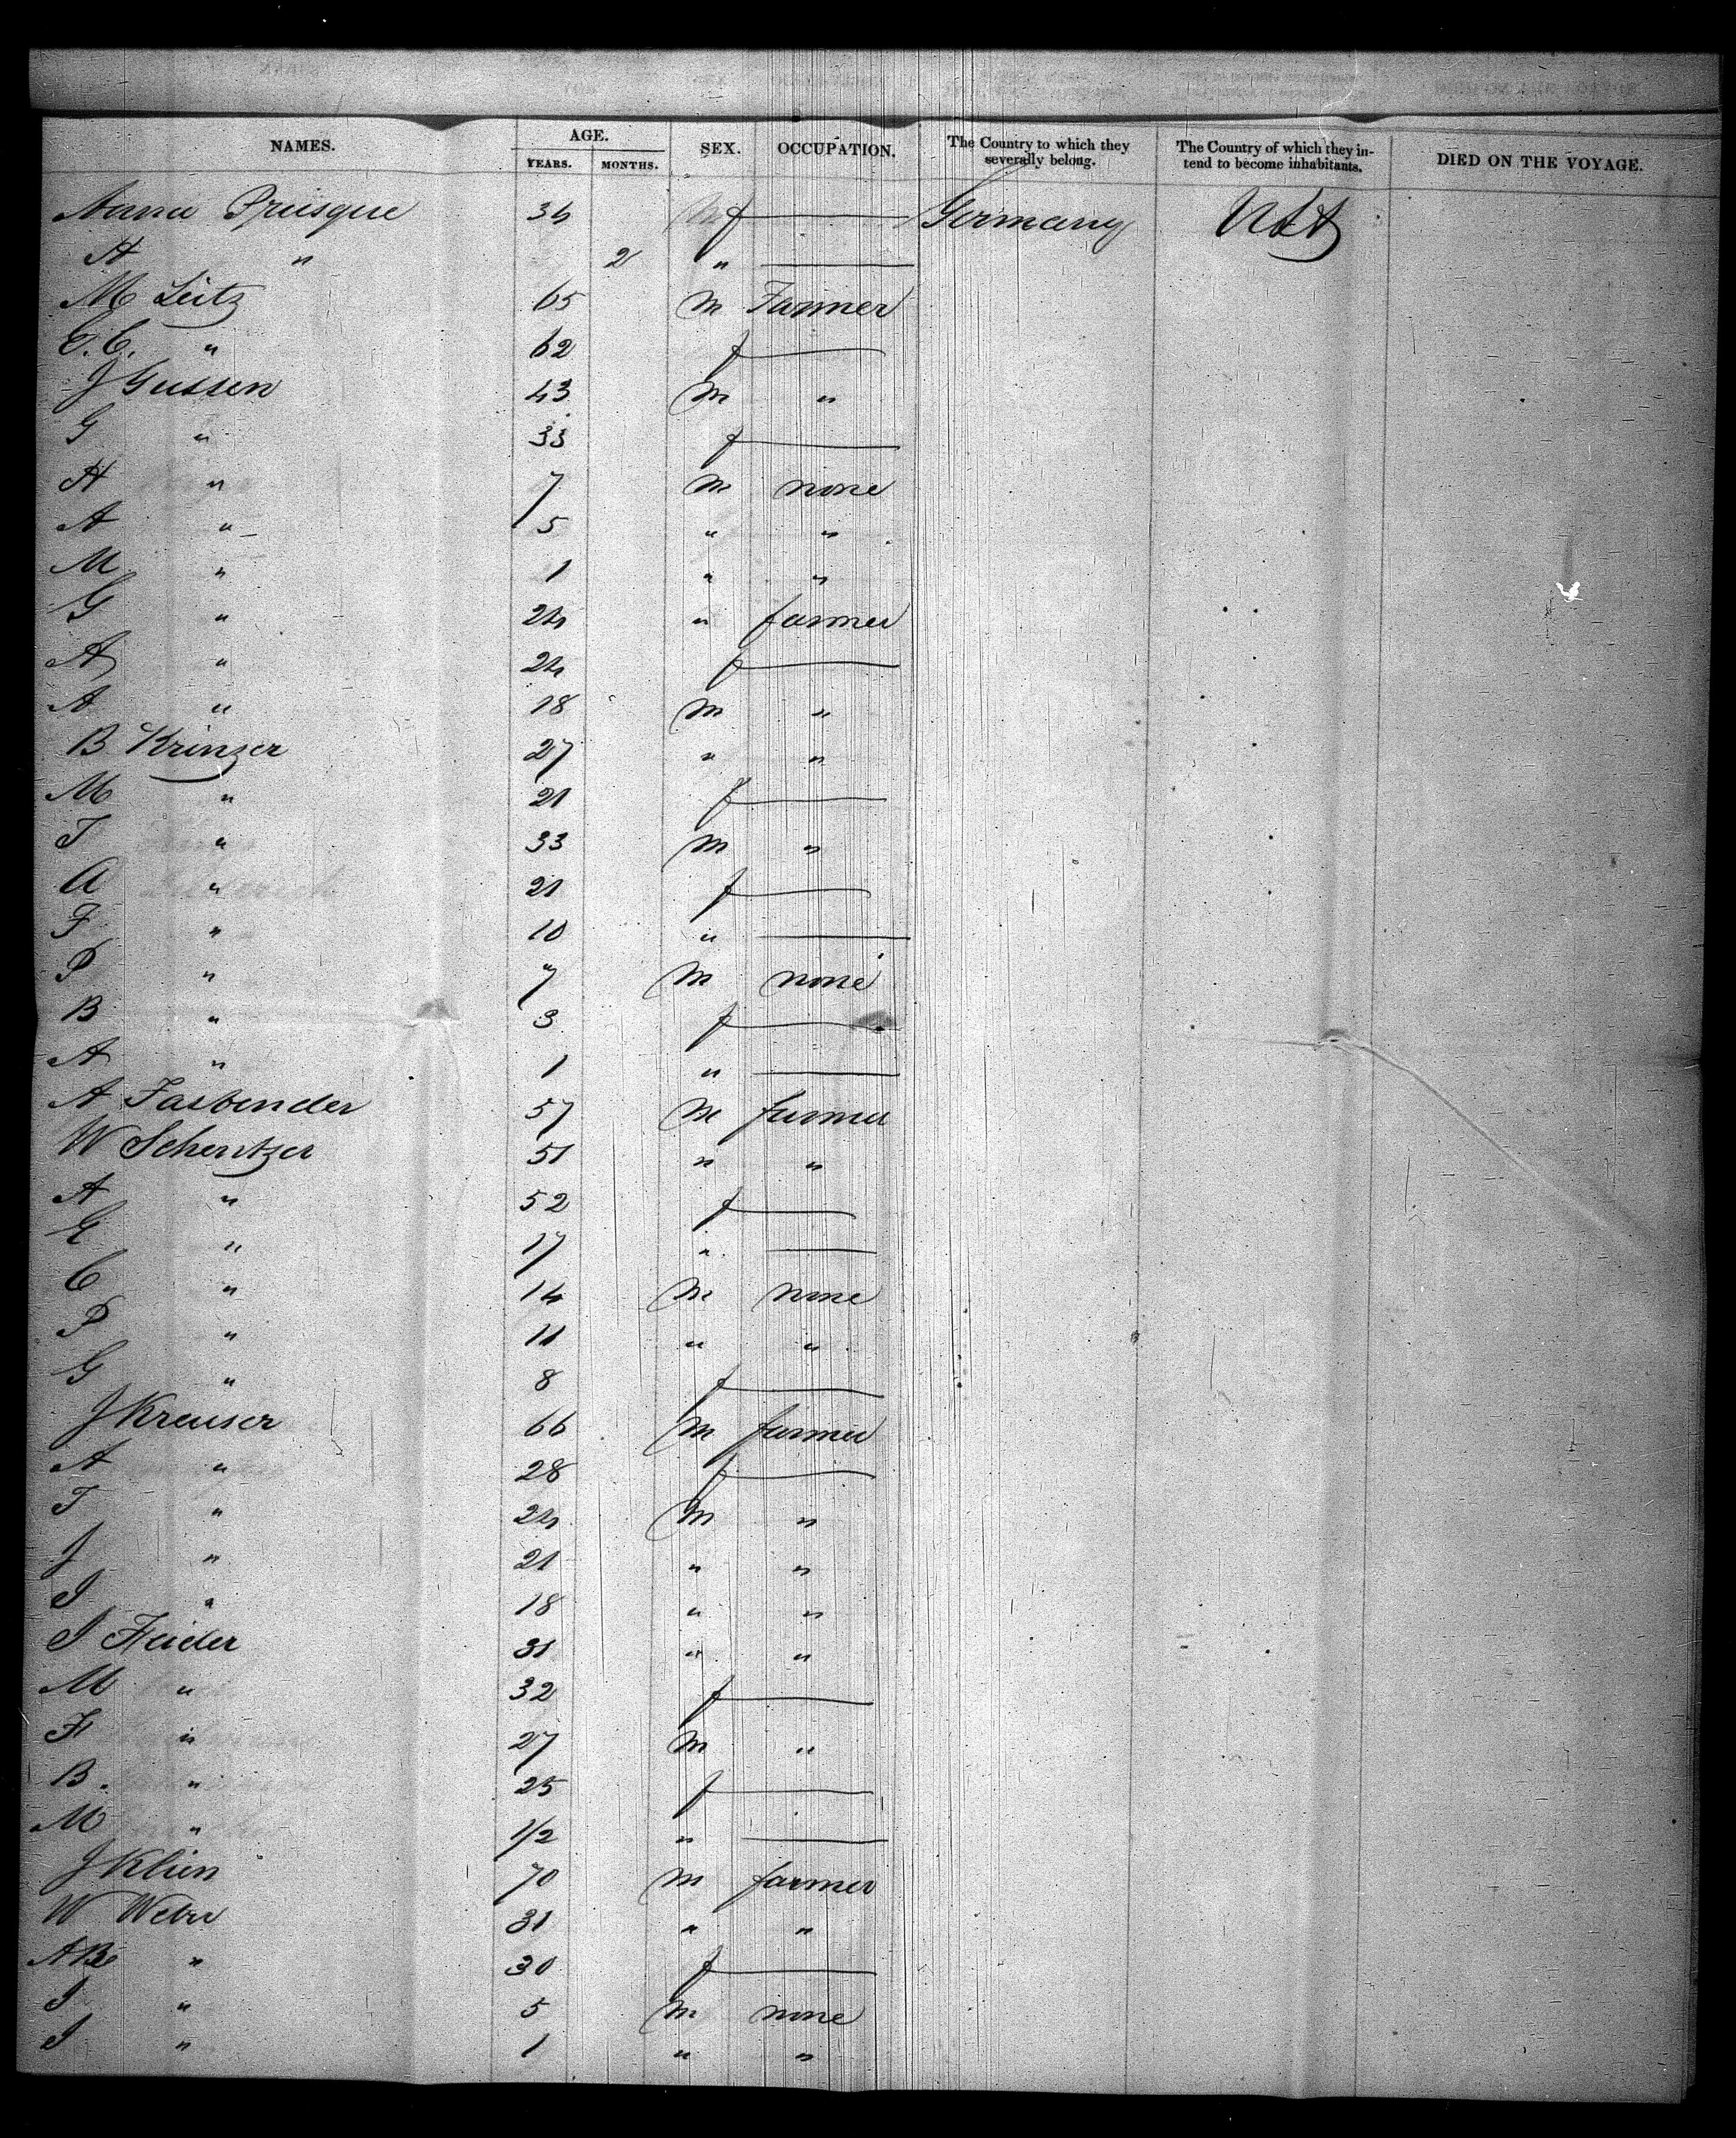 NAMES. AGE. YEARS. MONTHS. SEX. OCCUPATION. The Country to which they severally belong. The Country of which they intend to become inhabitants. DIED ON THE VOYAGE.
Anna Preisque 34 f — Germany USA
A " 2 " —
M Leitz 65 m Farmer
C. C. " 62 f —
J Gussen 43 m "
G " 33 f —
H " 7 m none
A " 5 " "
M " 1 " "
G " 24 " farmer
A " 24 f —
A " 18 m "
B Krinzer 27 " "
M " 21 f —
T " 33 m "
A " 21 f —
F " 10 " —
P " 7 m none
B " 3 f —
A " 1 " —
A Fasbender 57 m farmer
W Schentzer 51 " "
A " 52 f —
E " 17 " —
C " 14 m none
P " 11 " "
G " 8 f —
J Kreuser 66 m farmer
A " 28 f —
T " 24 m "
J " 21 " "
I " 18 " "
I Heider 31 " "
M " 32 f —
H " 27 m "
B. " 25 f —
M " 1/2 " —
J Klien 70 m farmer
W Weber 31 " "
" 30 f —
I " 5 m none
I " 1 " "